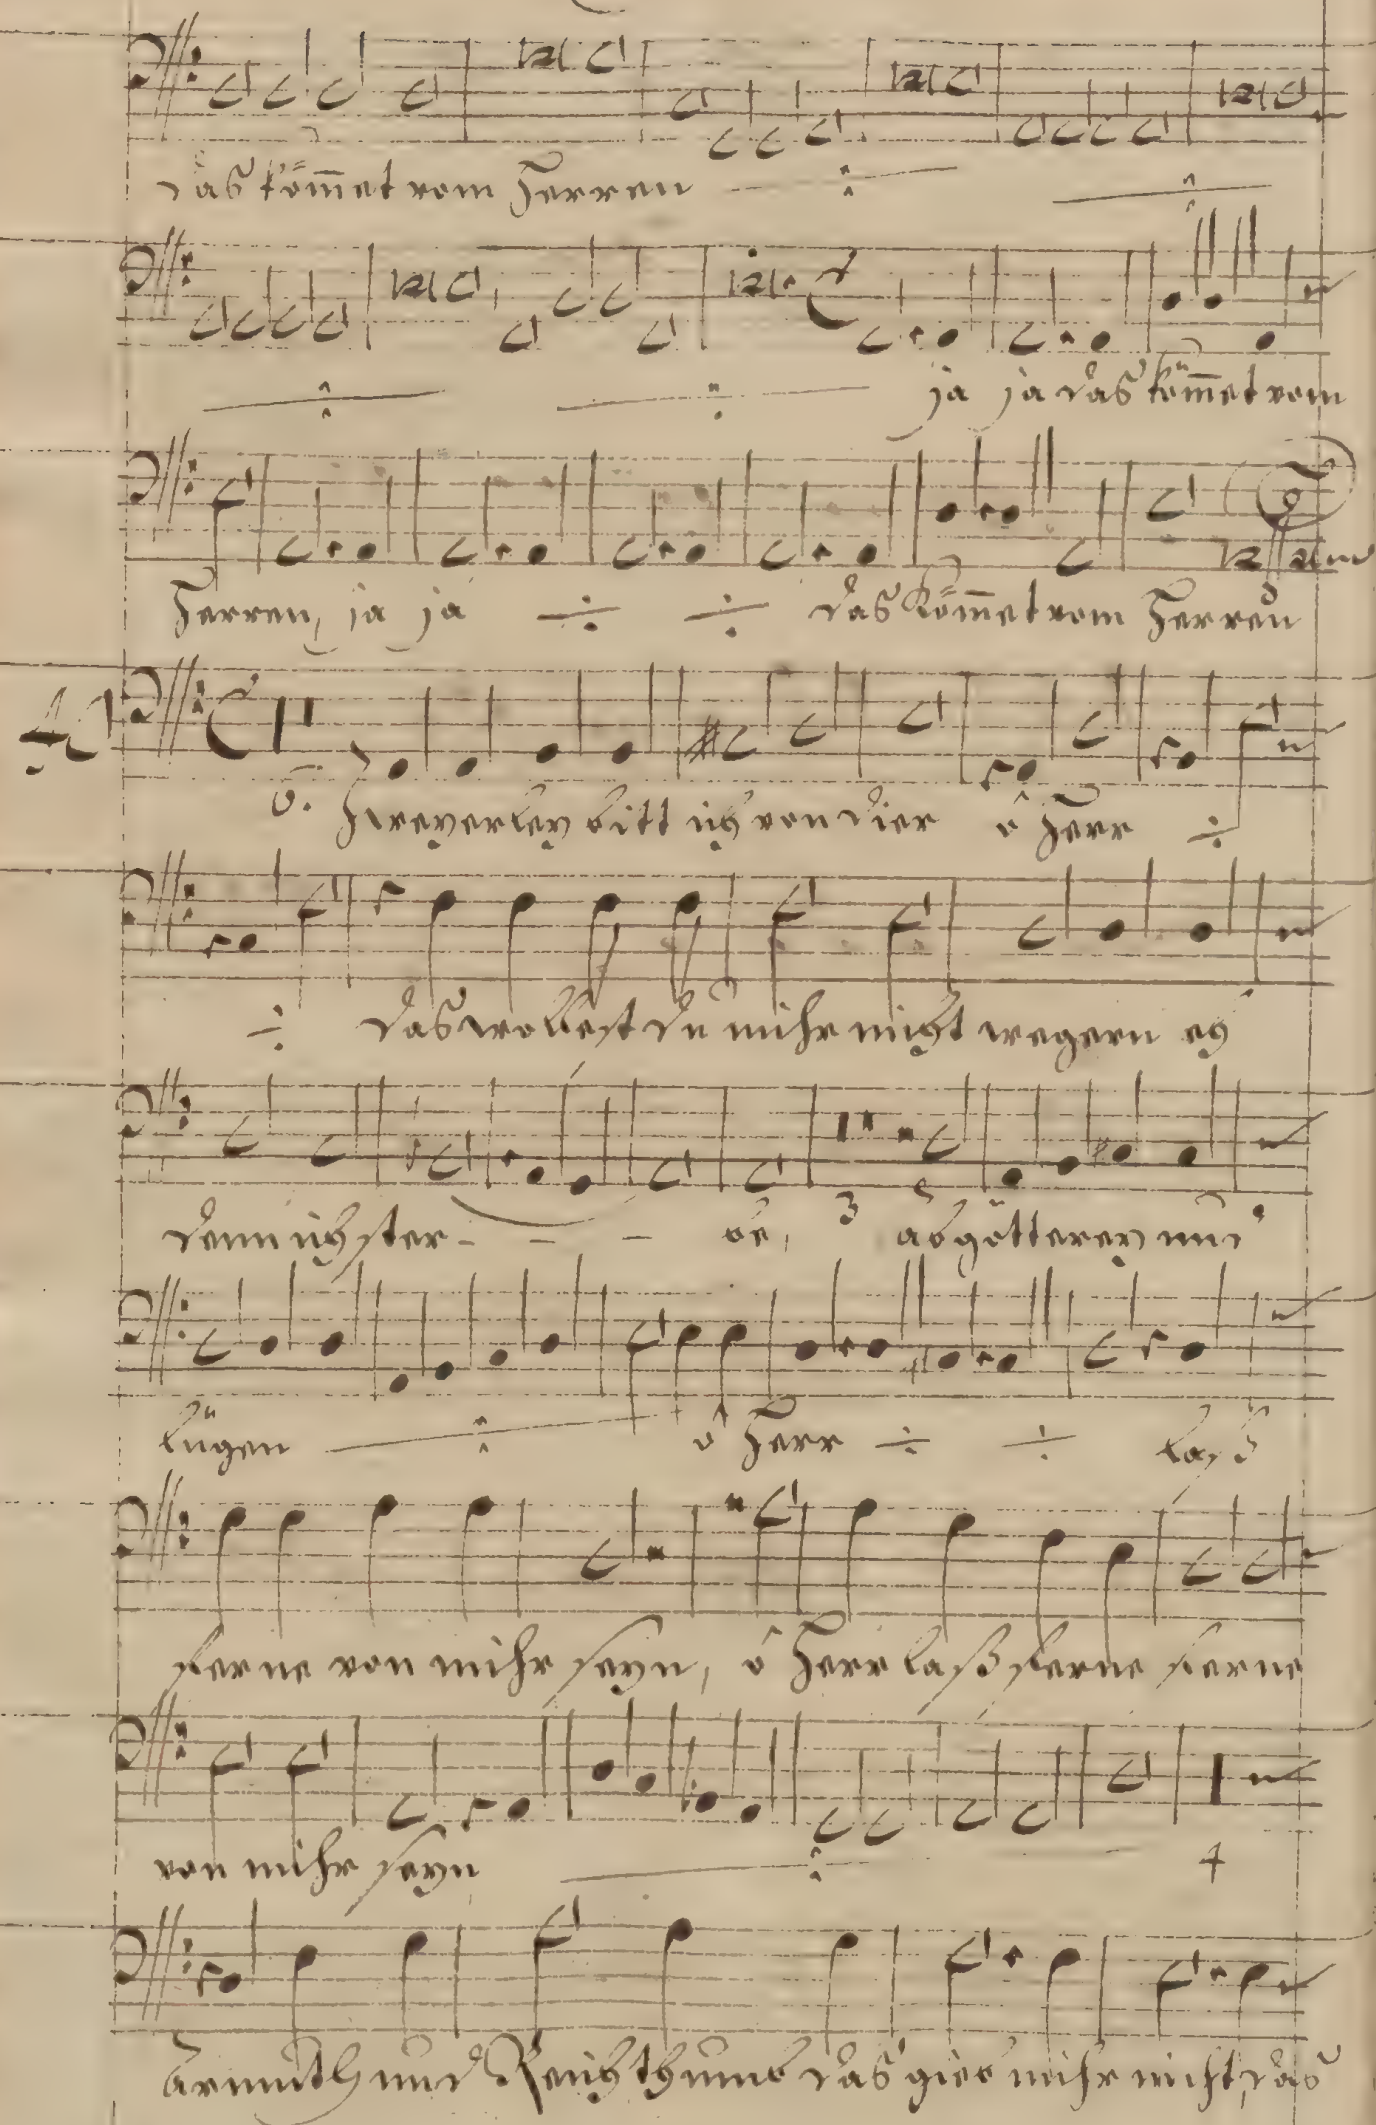 das kom̄et vom Herren
ja ja das kom̄et vom
Herren, ja ja das kom̄et vom Herren
6. Zweyerley bitt ich von dier ô Herr
das wollest du mihr nicht wegern eh
denn ich ster - - - be, 3 abgötterey und
lügen ô Herr laß
ferne von mihr seyn, ô Herr laß ferne ferne
von mihr seyn 4
Armuth und Reichthumb das gieb mihr nicht, das